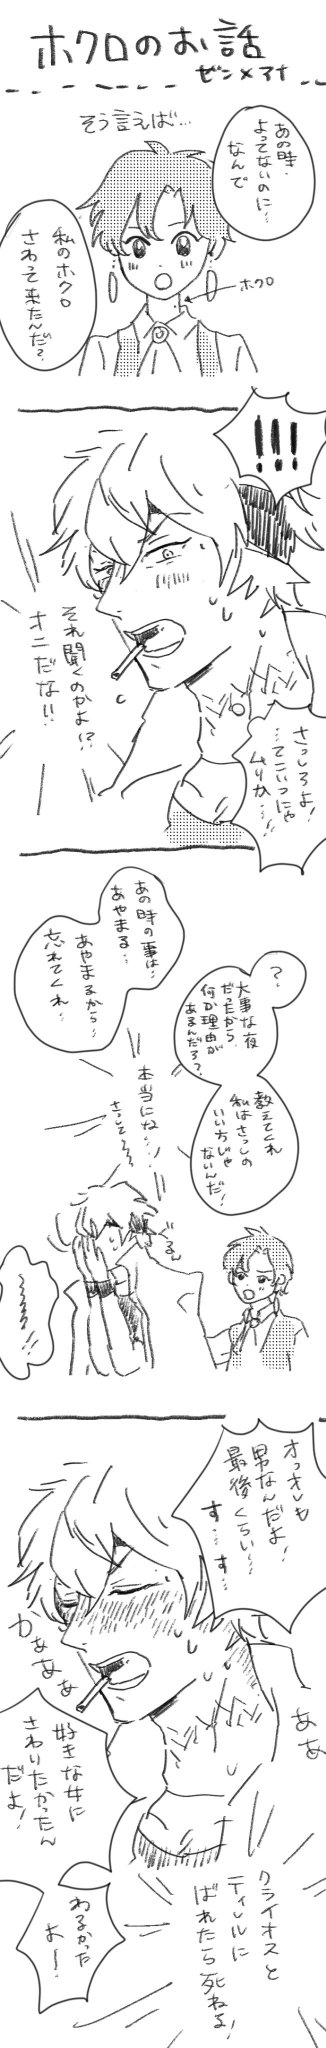 ホクロのお話
ゼン×アナ
そう言えば…
あの時、
よってないのに…
なんで
私のホクロ
さわって来たんだ?
ホクロ
!!!
それ聞くのかよ!?
オニだな!!
さっしろよ!
…てこいつにゃ
ムリか…!
あの時の事は…
あやまる…
あやまるから…
忘れてくれ…
?
大事な夜
だったから
何か理由が
あるんだろ?
教えてくれ
私はさっしの
いい方じゃ
ないんだ!
本当にな…
さっして〜
オっオレも
男なんだよ!
最後くらい…
す…す…
かぁぁぁ
ああ
好きな女に
さわりたかったん
だよ!
クライオスと
ティレルに
ばれたら死ねる!
わるかった
よー!